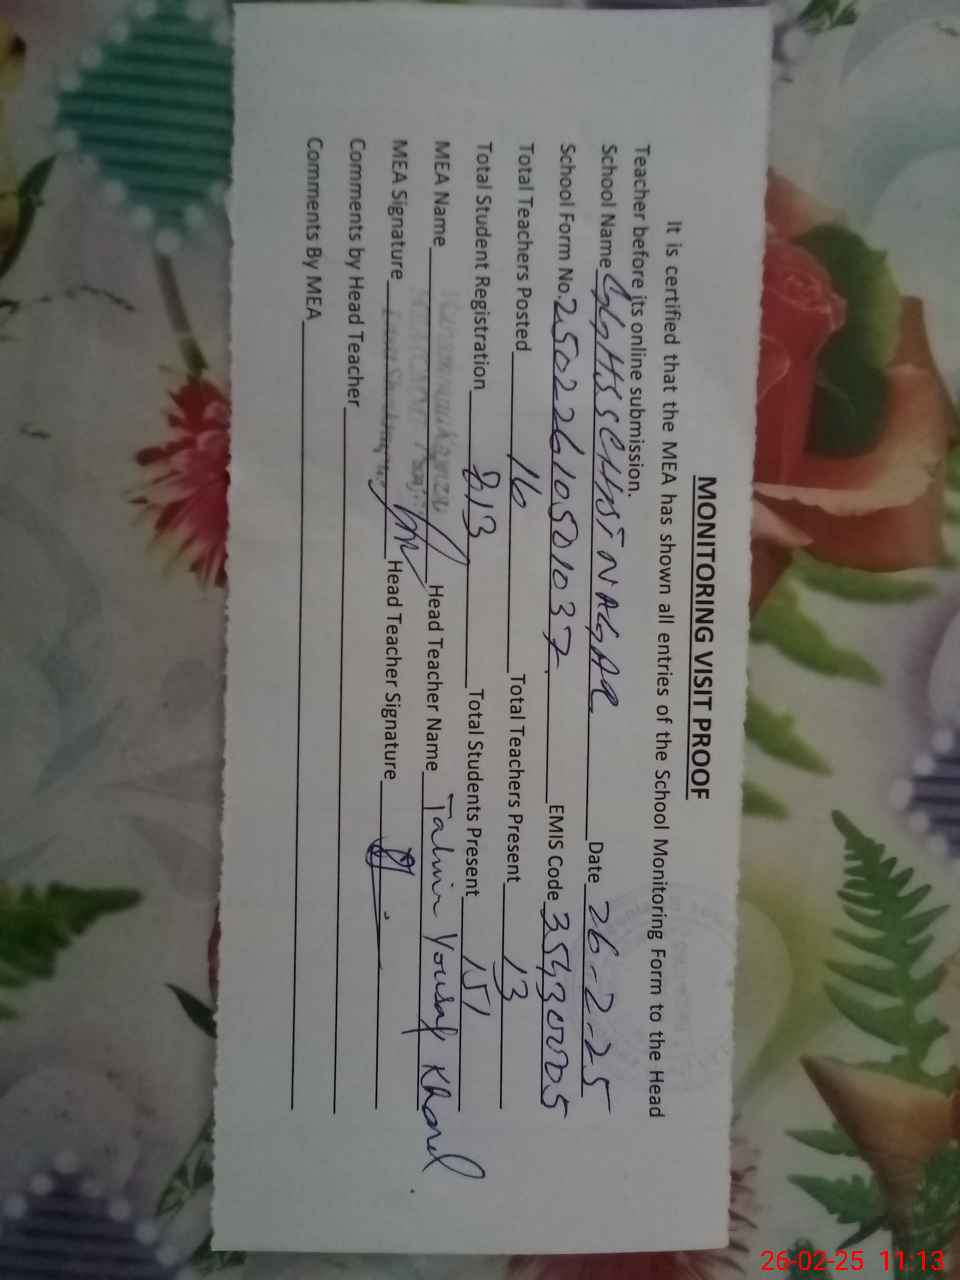 MONITORING VISIT PROOF
It is certified that the MEA has shown all entries of the School Monitoring Form to the Head
Teacher before its online submission.
School Name GGHSS CHISHTINAGAR Date 26-2-25
School Form No. 25022610501037 EMIS Code 35430005
Total Teachers Posted 16 Total Teachers Present 13
Total Student Registration 813 Total Students Present 151
MEA Name Head Teacher Name Yousaf
MEA Signature Head Teacher Signature
Comments by Head Teacher
Comments By MEA
26-02-25 11:13